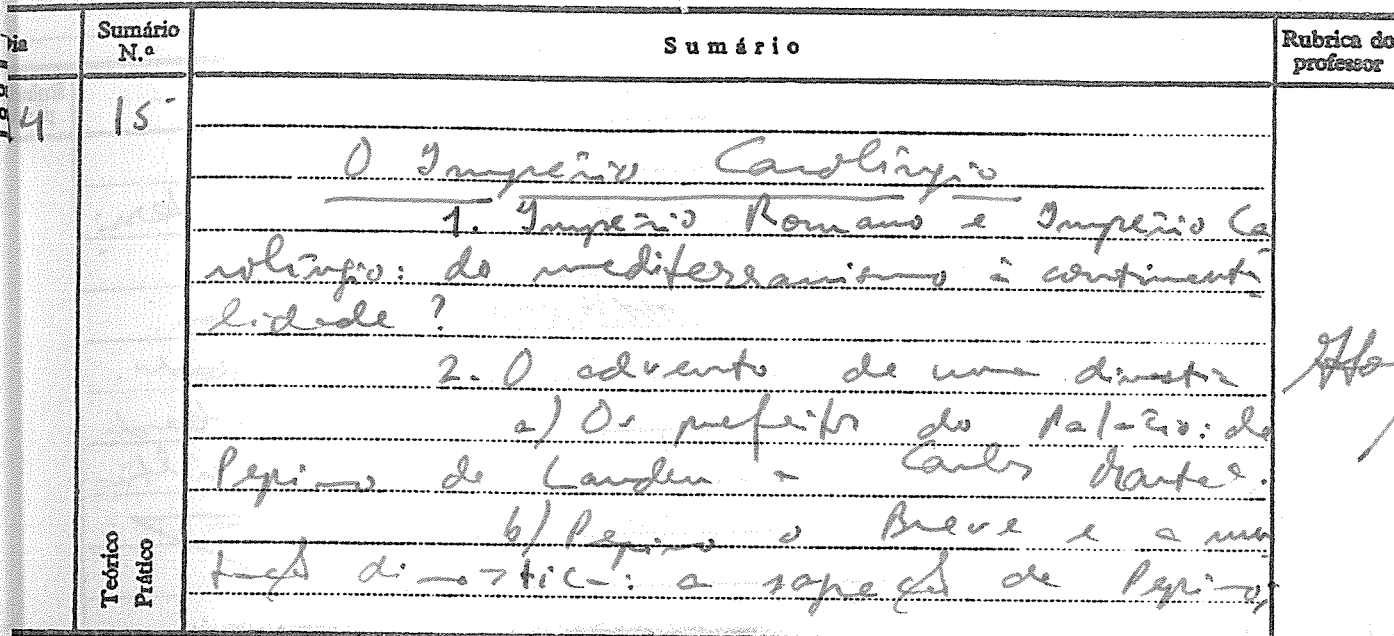 Dia
Sumário N.º
Sumário
Rubrica do professor
4
15
O Império Carolíngio
1. Império Romano e Império Ca
rolíngio: do mediterranismo à continenta
lidade?
2. O advento de uma dinastia
a) Os prefeitos do Palácio: de
Pepino de Landen a Carlos Martel.
b) Pepino o Breve e a mu
tação dinástica: a sagração de Pepino,
Teórico
Prático